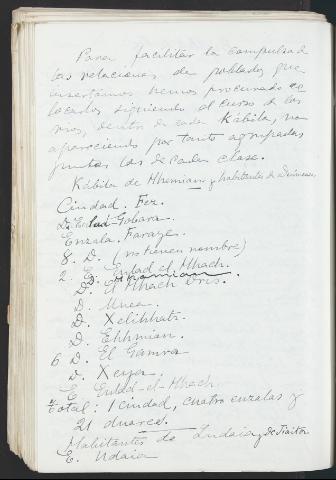 Para facilitar la compulsa de
las relaciones de poblados que
insertamos hemos procurado co
locarlos siguiendo el curso de los
rios, dentro de cada Kábila, no
apareciendo por tanto agrupados
juntos los de cada clase.
Kábila de Mhemian y habitantes de
Ciudad. Fez.
D. Enlad Gobara.
Enzala. Faraye.
8. D. (no tienen nombre)
2. E. Enlad el Mhach.
D. Mhamian
D. El Mhach Dris.
D. Unea.
D. Xelihhats.
D. Ehhmian.
6 D. El Gamra
D. Xeyea.
E. Enlad-el-Mhach.
Total: 1 ciudad, cuatro enzalas y
21 duares.
Habitantes de Zudaia, de
E. Udaia